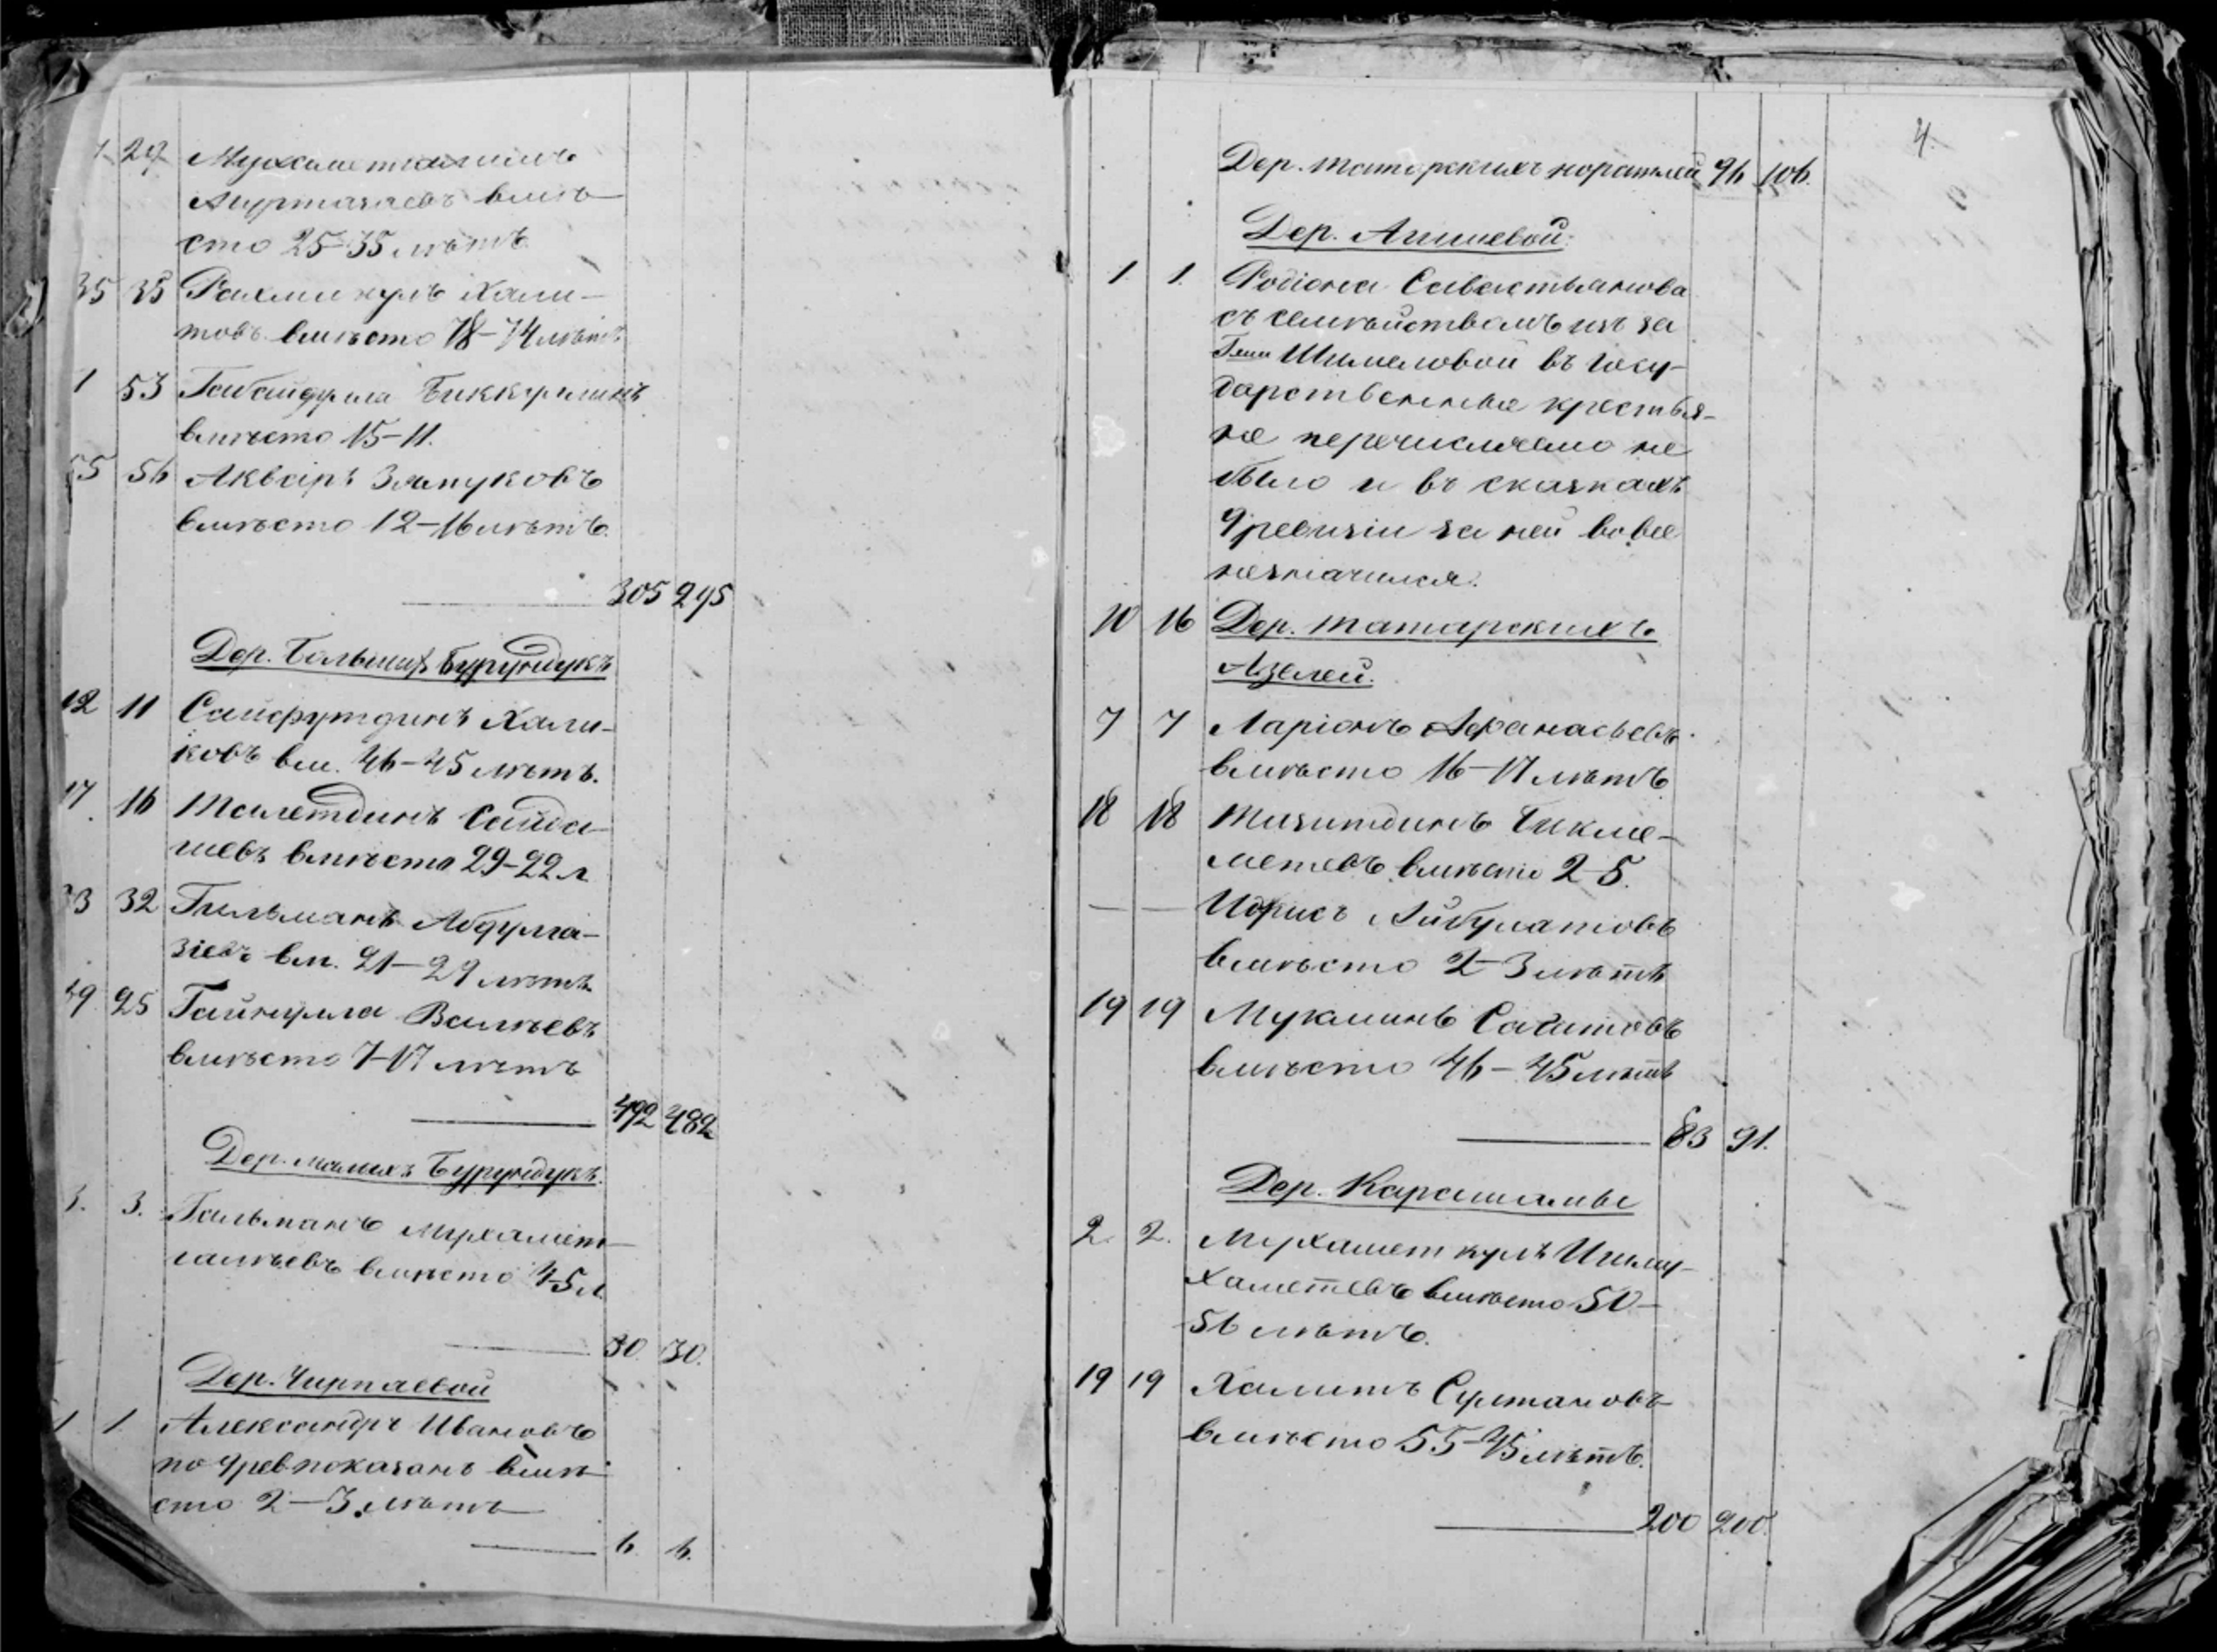 29 Мухаметкамилъ
Муртазаевъ вмѣ-
сто 25-35 лѣтъ
35 35 Рахманкулъ Хами-
товъ вмѣсто 78-74 лѣтъ
1 53 Габайдулла Биккуловъ
вмѣсто 15-11.
55 56 Акваръ Зяпуковъ
вмѣсто 12-16 лѣтъ.
305 295
Дер. Большихъ Бурундукъ
12 11 Сайфутдинъ Хали-
ковъ вм. 46-45 лѣтъ.
17 16 Жалетдинъ Сайда-
шевъ вмѣсто 29-22 л
33 32 Гильманъ Абдулга-
зіевъ вм. 21-29 лѣтъ
49 25 Гайнулла Валѣевъ
вмѣсто 7-17 лѣтъ
492 482
Дер. малыхъ Бурундукъ.
3. 3. Гальманъ Мухамет-
галѣевъ вмѣсто 4-5 л.
30. 30.
Дер. Чирпаевой
1 1. Александръ Ивановъ
по 9 рев показанъ вмѣ-
сто 2-3 лѣтъ
6. 6.
4.
Дер. татарскихъ норатлей 96 106.
Дер. Агишевой.
1. 1. Родіона Савастьянова
съ семѣйствомъ изъ за
Гжи Шишеловой въ госу-
дарственные крестья-
не перечисляемо не
было и въ сказкахъ
9 ревизіи за ней вовсе
незначился.
10 16 Дер. татарскихъ
Азелей.
7 7 Ларіонъ Афанасьевъ
вмѣсто 16-17 лѣтъ
18 18 Тазитдинъ Бикме-
метевъ вмѣсто 2-5.
— — Идрисъ Айбулатовъ
вмѣсто 2-3 лѣтъ
19 19 Мукминъ Сагитовъ
вмѣсто 46-45 лѣтъ
83 91.
Дер. Карашамы
2. 2. Мухаметкулъ Ишму-
хаметевъ вмѣсто 50-
56 лѣтъ.
19 19 Халитъ Султановъ
вмѣсто 55-45 лѣтъ.
200 200.